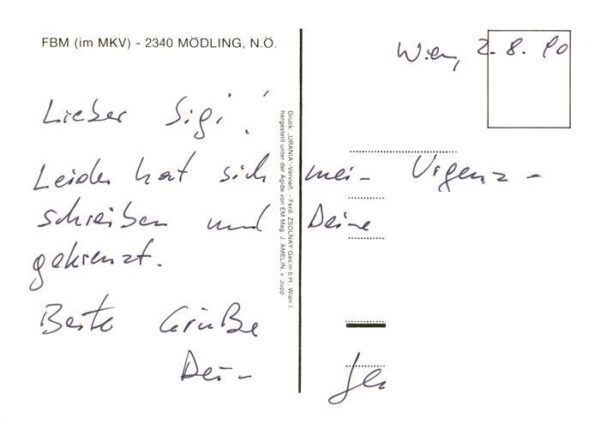 FBM (im MKV) - 2340 MÖDLING, N.Ö.
Wien, 2.8.90
Lieber Sigi!
Leider hat sich mein Urgenz-
schreiben und Deine
gekreuzt.
Beste Grüße
Dein
Druck: „URANIA"-Vervielf. - Ferd. ZSOLNAY Ges.m.b.H., Wien I.
hergestellt unter der Ägide von EM Mag. J. AMELIN, v. Jupp